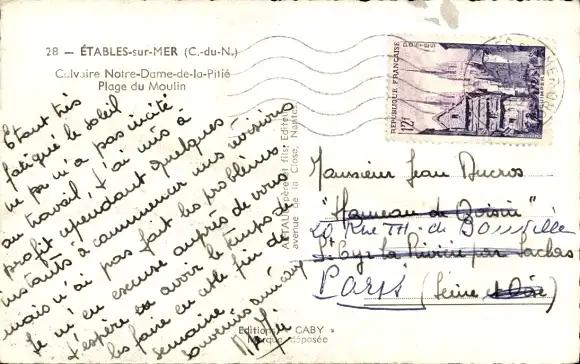 28 — ÉTABLES-sur-MER (C.-du-N.)
Calvaire Notre-Dame-de-la-Pitié
Plage du Moulin
Etant très
fatigué le soleil
ne m'a pas incité
au travail. J'ai mis à
profit cependant quelques
instants à commencer mes révisions
mais n'ai pas fait les problèmes.
Je m'en excuse auprès de vous
J'espère avoir le temps de
les faire en cette fin de
semaine.
Souvenirs
ARTAUD père et fils, Editeurs
avenue de la Close, Nantes
Editions « GABY »
Marque déposée
POSTES
REPUBLIQUE FRANÇAISE
12F
Monsieur Jean Ducros
"Hameau de
20 Rue TH. de
St Cyr la Rivière par Saclas
Paris (Seine et Oise)